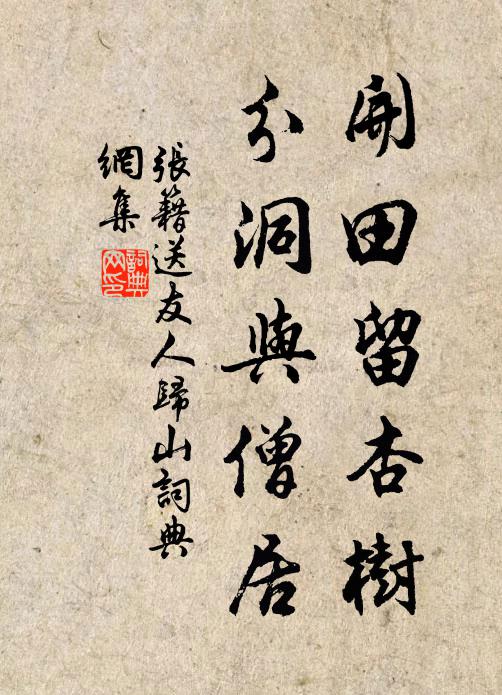 開田留杏樹
分洞與僧居
張籍送友人歸山詞典
網集
詞典
网印